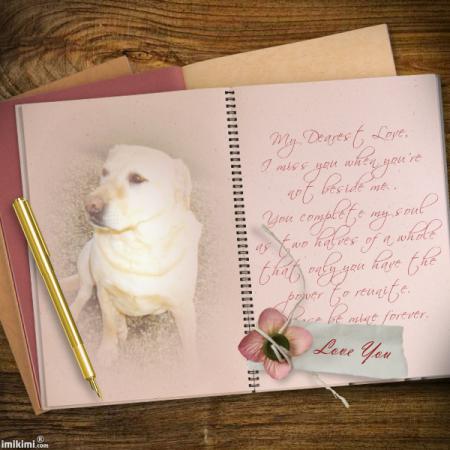 My Dearest Love,
I miss you when you're
not beside me..
You complete my soul
as two halves of a whole
that only you have the
power to reunite.
be mine forever.
Love You
imikimi®.com